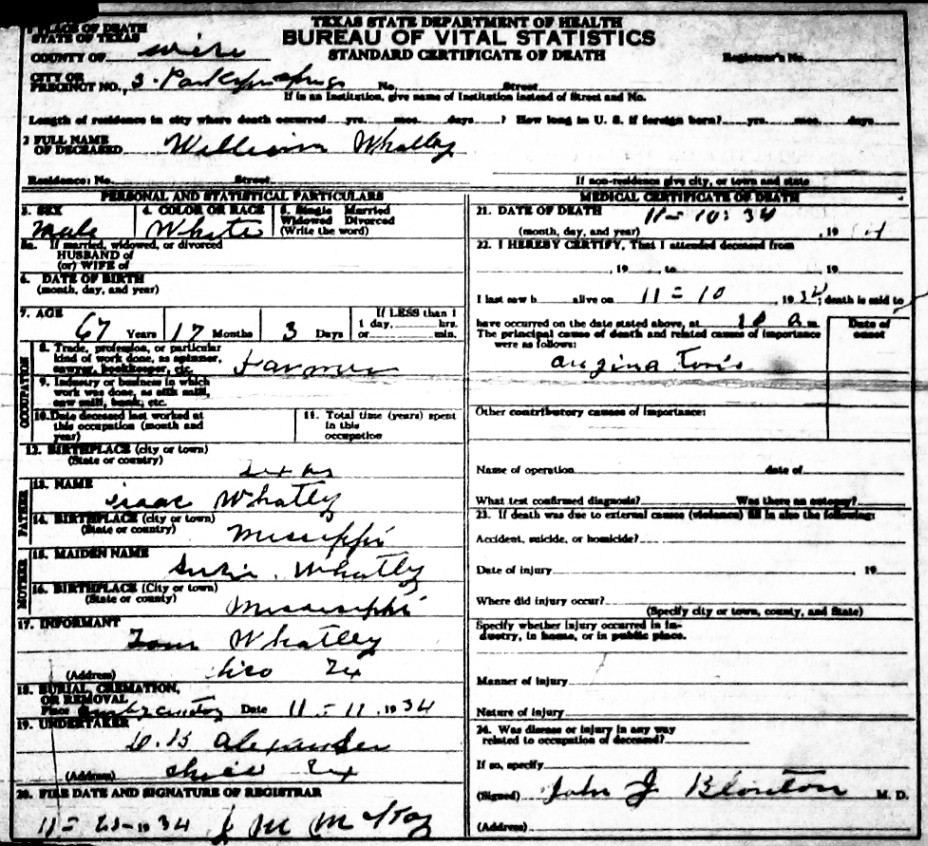 TEXAS STATE DEPARTMENT OF HEALTH
BUREAU OF VITAL STATISTICS
STANDARD CERTIFICATE OF DEATH
PLACE OF DEATH
STATE OF TEXAS
COUNTY OF Wise
Registrar's No.
CITY OR
PRECINCT NO., 3. No. Street
If in an Institution, give name of Institution instead of Street and No.
Length of residence in city where death occurred yrs. mos. days. ? How long in U. S. if foreign born? yrs. mos. days
2 FULL NAME
OF DECEASED William Whatley
Residence: No. Street If non-residence give city, or town and state
PERSONAL AND STATISTICAL PARTICULARS
3. SEX
Male
4. COLOR OR RACE
White
5. Single Married
Widowed Divorced
(Write the word)
5a. If married, widowed, or divorced
HUSBAND of
(or) WIFE of
6. DATE OF BIRTH
(month, day, and year)
7. AGE
67 Years 17 Months 3 Days
If LESS than 1
1 day, hrs.
or min.
OCCUPATION
8. Trade, profession, or particular
kind of work done, as spinner,
sawyer, bookkeeper, etc. Farmer
9. Industry or business in which
work was done, as silk mill,
saw mill, bank, etc.
10. Date deceased last worked at
this occupation (month and
year)
11. Total time (years) spent
in this
occupation
12. BIRTHPLACE (city or town)
(State or country)
FATHER
13. NAME
Isaac Whatley
14. BIRTHPLACE (city or town)
(State or country) Missippi
MOTHER
15. MAIDEN NAME
Whatley
16. BIRTHPLACE (City or town)
(State or county) Mississippi
17. INFORMANT
Tom Whatley
(Address) Tex
18. BURIAL, CREMATION,
OR REMOVAL
Place Date 11 - 11, 1934
19. UNDERTAKER
Alexander
(Address) Tex
20. FILE DATE AND SIGNATURE OF REGISTRAR
1934 J M McKoy
MEDICAL CERTIFICATE OF DEATH
21. DATE OF DEATH 11 - 10: 34
(month, day, and year) , 19
22. I HEREBY CERTIFY, That I attended deceased from
, 19 , to , 19
I last saw h alive on 11 = 10 , 1934, death is said to
have occurred on the date stated above, at 10 a m.
The principal causes of death and related causes of importance
were as follows:
Date of
onset
Other contributory causes of importance:
Name of operation date of
What test confirmed diagnosis? Was there an autopsy?
23. If death was due to external causes (violence) fill in also the following:
Accident, suicide, or homicide?
Date of injury , 19
Where did injury occur?
(Specify city or town, county, and State)
Specify whether injury occurred in in-
dustry, in home, or in public place.
Manner of injury
Nature of injury
24. Was disease or injury in any way
related to occupation of deceased?
If so, specify
(Signed) John J M. D.
(Address)